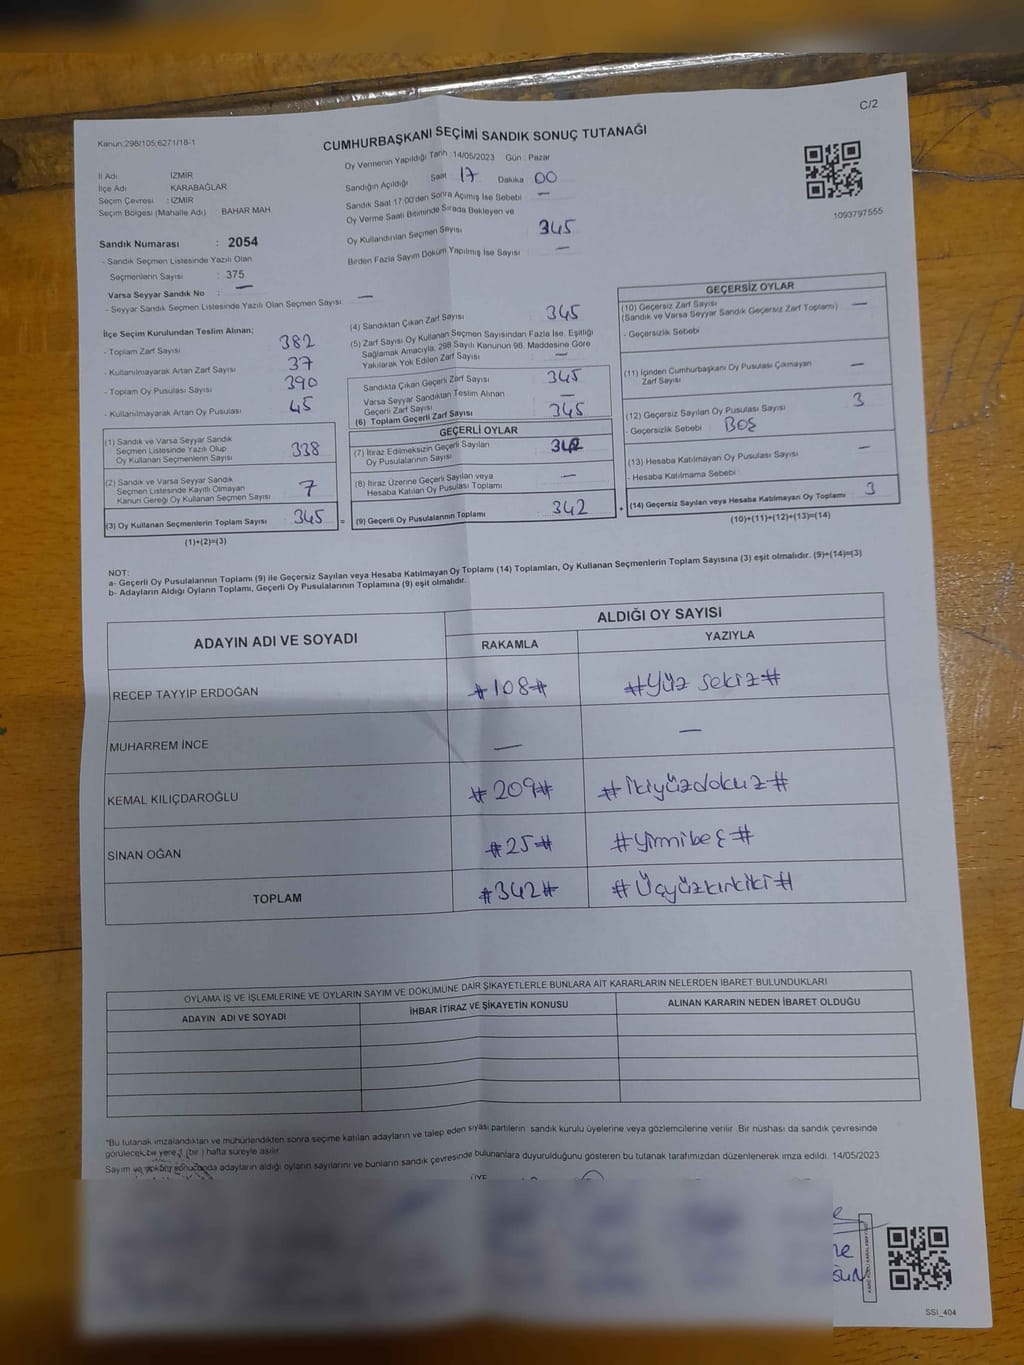 C/2
Kanun;298/105;6271/18-1
CUMHURBAŞKANI SEÇİMİ SANDIK SONUÇ TUTANAĞI
Oy Vermenin Yapıldığı Tarih :14/05/2023 Gün : Pazar
İl Adı IZMIR
İlçe Adı KARABAĞLAR
Seçim Çevresi : IZMIR
Seçim Bölgesi (Mahalle Adı) : BAHAR MAH
Sandığın Açıldığı Saat 17 Dakika 00
Sandık Saat 17:00'den Sonra Açımış İse Sebebi —
Oy Verme Saati Bitiminde Sırada Bekleyen ve
Oy Kullandırılan Seçmen Sayısı 345
Birden Fazla Sayım Döküm Yapılmış İse Sayısı —
1093797555
Sandık Numarası : 2054
- Sandık Seçmen Listesinde Yazılı Olan
Seçmenlerin Sayısı : 375
Varsa Seyyar Sandık No : —
- Seyyar Sandık Seçmen Listesinde Yazılı Olan Seçmen Sayısı: —
İlçe Seçim Kurulundan Teslim Alınan;
- Toplam Zarf Sayısı 382
- Kullanılmayarak Artan Zarf Sayısı 37
- Toplam Oy Pusulası Sayısı 390
- Kullanılmayarak Artan Oy Pusulası 45
(1) Sandık ve Varsa Seyyar Sandık
Seçmen Listesinde Yazılı Olup
Oy Kullanan Seçmenlerin Sayısı 338
(2) Sandık ve Varsa Seyyar Sandık
Seçmen Listesinde Kayıtlı Olmayan
Kanun Gereği Oy Kullanan Seçmen Sayısı 7
(3) Oy Kullanan Seçmenlerin Toplam Sayısı 345 =
(1)+(2)=(3)
(4) Sandıktan Çıkan Zarf Sayısı 345
(5) Zarf Sayısı Oy Kullanan Seçmen Sayısından Fazla İse, Eşitliği
Sağlamak Amacıyla, 298 Sayılı Kanunun 98. Maddesine Göre
Yakılarak Yok Edilen Zarf Sayısı —
Sandıkta Çıkan Geçerli Zarf Sayısı 345
Varsa Seyyar Sandıktan Teslim Alınan
Geçerli Zarf Sayısı —
(6) Toplam Geçerli Zarf Sayısı 345
GEÇERLİ OYLAR
(7) İtiraz Edilmeksizin Geçerli Sayılan
Oy Pusulalarının Sayısı 342
(8) İtiraz Üzerine Geçerli Sayılan veya
Hesaba Katılan Oy Pusulası Toplamı —
(9) Geçerli Oy Pusulalarının Toplamı 342 +
GEÇERSİZ OYLAR
(10) Geçersiz Zarf Sayısı
(Sandık ve Varsa Seyyar Sandık Geçersiz Zarf Toplamı) —
- Geçersizlik Sebebi
(11) İçinden Cumhurbaşkanı Oy Pusulası Çıkmayan
Zarf Sayısı —
(12) Geçersiz Sayılan Oy Pusulası Sayısı 3
- Geçersizlik Sebebi BOŞ
(13) Hesaba Katılmayan Oy Pusulası Sayısı —
- Hesaba Katılmama Sebebi
(14) Geçersiz Sayılan veya Hesaba Katılmayan Oy Toplamı 3
(10)+(11)+(12)+(13)=(14)
NOT:
a- Geçerli Oy Pusulalarının Toplamı (9) ile Geçersiz Sayılan veya Hesaba Katılmayan Oy Toplamı (14) Toplamları, Oy Kullanan Seçmenlerin Toplam Sayısına (3) eşit olmalıdır. (9)+(14)=(3)
b- Adayların Aldığı Oyların Toplamı, Geçerli Oy Pusulalarının Toplamına (9) eşit olmalıdır.
ADAYIN ADI VE SOYADI
ALDIĞI OY SAYISI
RAKAMLA YAZIYLA
RECEP TAYYİP ERDOĞAN #108# #Yüz sekiz#
MUHARREM İNCE — —
KEMAL KILIÇDAROĞLU #209# #İkiyüzdokuz#
SİNAN OĞAN #25# #yirmibeş#
TOPLAM #342# #Üçyüzkırkiki#
OYLAMA İŞ VE İŞLEMLERİNE VE OYLARIN SAYIM VE DÖKÜMÜNE DAİR ŞİKAYETLERLE BUNLARA AİT KARARLARIN NELERDEN İBARET BULUNDUKLARI
ADAYIN ADI VE SOYADI İHBAR İTİRAZ VE ŞİKAYETİN KONUSU ALINAN KARARIN NEDEN İBARET OLDUĞU
"Bu tutanak imzalandıktan ve mühürlendikten sonra seçime katılan adayların ve talep eden siyasi partilerin sandık kurulu üyelerine veya gözlemcilerine verilir .Bir nüshası da sandık çevresinde
görülecek bir yere 1 (bir ) hafta süreyle asılır.
Sayım ve döküm sonucunda adayların aldığı oyların sayılarını ve bunların sandık çevresinde bulunanlara duyurulduğunu gösteren bu tutanak tarafımızdan düzenlenerek imza edildi. 14/05/2023
ÜYE
SSI_404